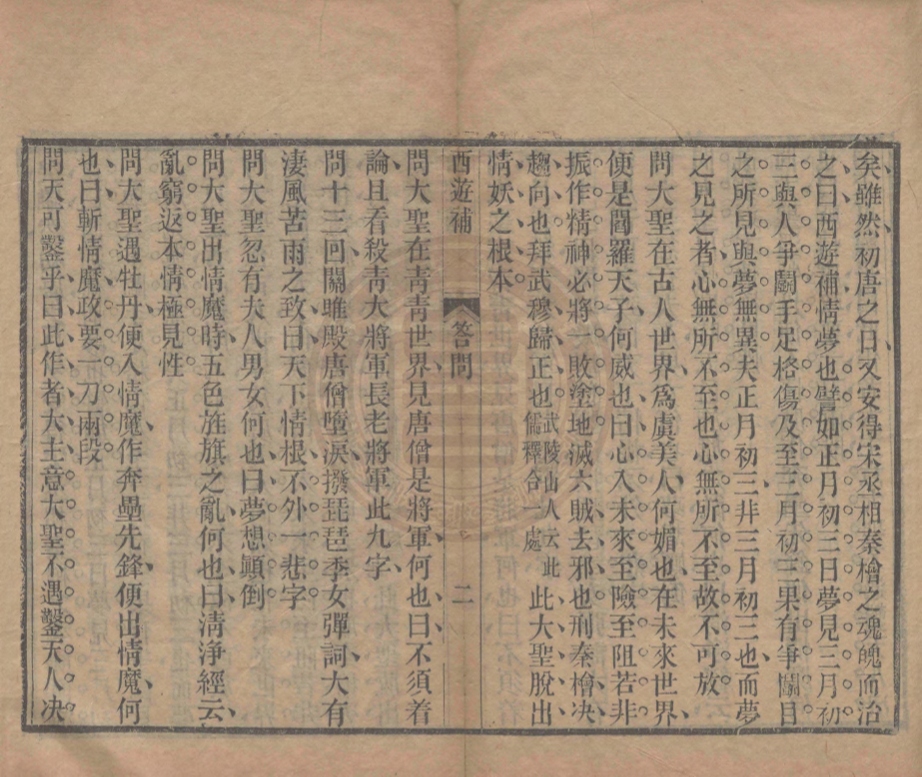 矣雖然初唐之日又安得宋丞相秦檜之魂魄而治
之曰西遊補情夢也譬如正月初三日夢見三月初
三與人爭鬭手足格傷及至三月初三果有爭鬭目
之所見與夢無異夫正月初三非三月初三也而夢
之見之者心無所不至也心無所不至故不可放
問大聖在古人世界爲虞美人何媚也在未來世界
便是閻羅天子何威也曰心入未來至險至阻若非
振作精神必將一敗塗地滅六賊去邪也刑秦檜决
趨向也拜武穆歸正也武陵山人云此儒釋合一處此大聖脫出
情妖之根本
西遊補 答問 二
問大聖在靑靑世界見唐僧是將軍何也曰不須着
論且看殺靑大將軍長老將軍此九字
問十三回關雎殿唐僧墮淚撥琵琶季女彈詞大有
淒風苦雨之致曰天下情根不外一悲字
問大聖忽有夫人男女何也曰夢想顚倒
問大聖出情魔時五色旌旗之亂何也曰淸淨經云
亂窮返本情極見性
問大聖遇牡丹便入情魔作奔壘先鋒便出情魔何
也曰斬情魔政要一刀兩段
問天可鑿乎曰此作者大主意大聖不遇鑿天人决